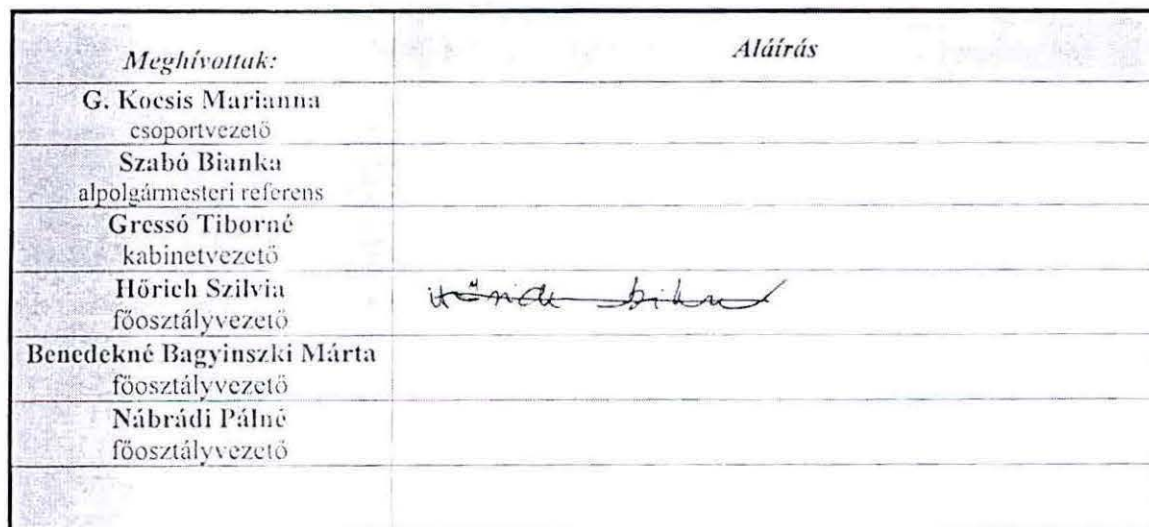 Meghívottak: Aláírás
G. Kocsis Marianna
csoportvezető
Szabó Bianka
alpolgármesteri referens
Gressó Tiborné
kabinetvezető
Hőrich Szilvia Hőrich Szilvia
főosztályvezető
Benedekné Bagyinszki Márta
főosztályvezető
Nábrádi Pálné
főosztályvezető